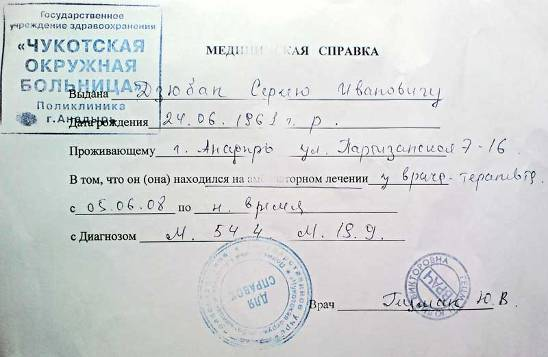 Государственное
учреждение здравоохранения
«ЧУКОТСКАЯ
ОКРУЖНАЯ
БОЛЬНИЦА»
Поликлиника
г. Анадырь
МЕДИЦИНСКАЯ СПРАВКА
Выдана Дзюбан Сергию Ивановичу
Дата рождения 24.06.1961 г.р.
Проживающему г. Анадырь ул. Партизанская 7-16
В том, что он (она) находился на амбулаторном лечении у врача-терапевта
с 05.06.08 по н. время
с Диагнозом М. 54 4 М. 19.9.
ДЛЯ
СПРАВОК
ВИКТОРОВНА
ВРАЧ
Врач Гецман Ю.В.